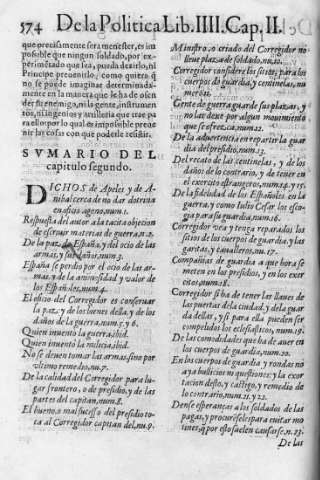 574 De la Politica Lib. IIII. Cap. II.
que precisamente sera menester, es im
posible que ningun soldado, por ex-
perimetado que sea, pueda dezirlo, ni
Principe preuenirlo, como quiera q̃
no se puede imaginar determinada-
mente en la manera que se ha de ofen
der su enemigo, ni la gente, instrumen
tos, ni ingenios y artilleria que trae pa
ra ello: por lo qual es impossible preue
nir las cosas con que poderle resistir.
SVMARIO DEL
capitulo segundo.
DICHOS de Apeles y de A-
nibal cerca de no dar dotrina
en oficio ageno, num. 1.
Respuesta del autor a la tacita objecion
de escriuir materias de guerra, n. 2.
De la paz de España, y del ocio de las
armas, y sus daños, num. 3.
España se perdio por el ocio de las ar-
mas, y de la animosidad y valor de
los Españoles, num. 4.
El oficio del Corregidor es conseruar
la paz, y de los bienes della, y de los
daños de la guerra, num. 5. y 6.
Quien inuento la guerra, ibid.
Quien inuentò la milicia, ibid.
No se deuen tomar las armas, sino por
vltimo remedio, nu. 7.
De la calidad del Corregidor para lu-
gar frontero, o de presidio, y de las
partes del capitan, num. 8.
El bueno, o mal sucesso del presidio to-
ca al Corregidor capitan del, nu. 9.
Ministro, o criado del Corregidor no
lleue plaza de soldado, nu. 10.
Corregidor considere los sitios para los
cuerpos de guardia, y centinelas, nu
mero 11.
Gente de guerra guarde sus plazas, y
no las dexe por algun mouimiento
que se ofrezca, num. 12.
De la aduertencia en repartir la guar
dia del presidio, num. 13.
Del recato de las centinelas, y de los
daños de lo contrario, y de tener en
el exercito estrangeros, num. 14. y 15.
De la fidelidad de los Españoles en la
guerra, y como Iulio Cesar los esco-
gia para su guardia, num. 16.
Corregidor vea y tenga reparados los
sitios de los cuerpos de guardia, y las
garitas, y caualleros, num. 17.
Compañias de guardia a que hora se
meten en los presidios, y en los exer
citos, num. 18.
Corregidor si ha de tener las llaues de
las puertas de la ciudad, y de la guar
da dellas, y si para ella pueden ser
compelidos los eclesiasticos, num. 19.
De las comodidades que ha de auer en
los cuerpos de guardia, num. 20.
En los cuerpos de guardia y rondas no
aya bullicios ni questiones: y la exor
tacion desto, y castigo, y remedio de
lo contrario, num. 21. y 22.
Dense esperanças a los soldados de las
pagas, y procureles para euitar mo
tines, que por esto suelen causarse, n. 23.
De las